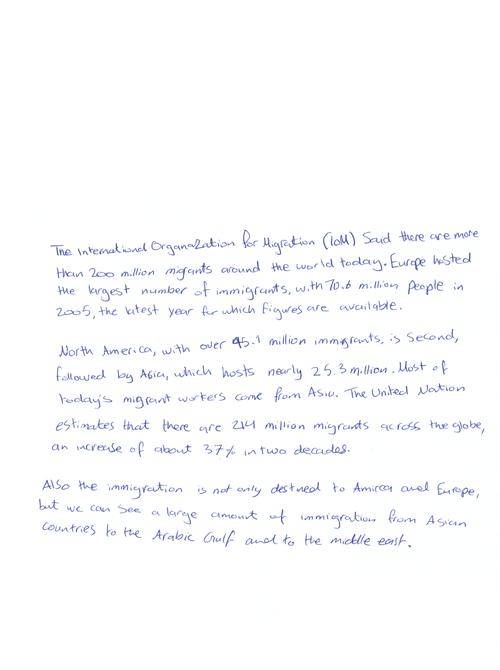 The International Organazation for Migration (IOM) Said there are more
than 200 million migrants around the world today. Europe hosted
the largest number of immigrants, with 70.6 million People in
2005, the latest year for which figures are available.
North America, with over 45.1 million immigrants, is Second,
followed by Asia, which hosts nearly 25.3 million. Most of
today's migrant workers come from Asia. The United Nation
estimates that there are 214 million migrants across the globe,
an increase of about 37% in two decades.
Also the immigration is not only destned to Amirca and Europe,
but we can See a large amount of immigration from Asian
Countries to the Arabic Gulf and to the middle east.